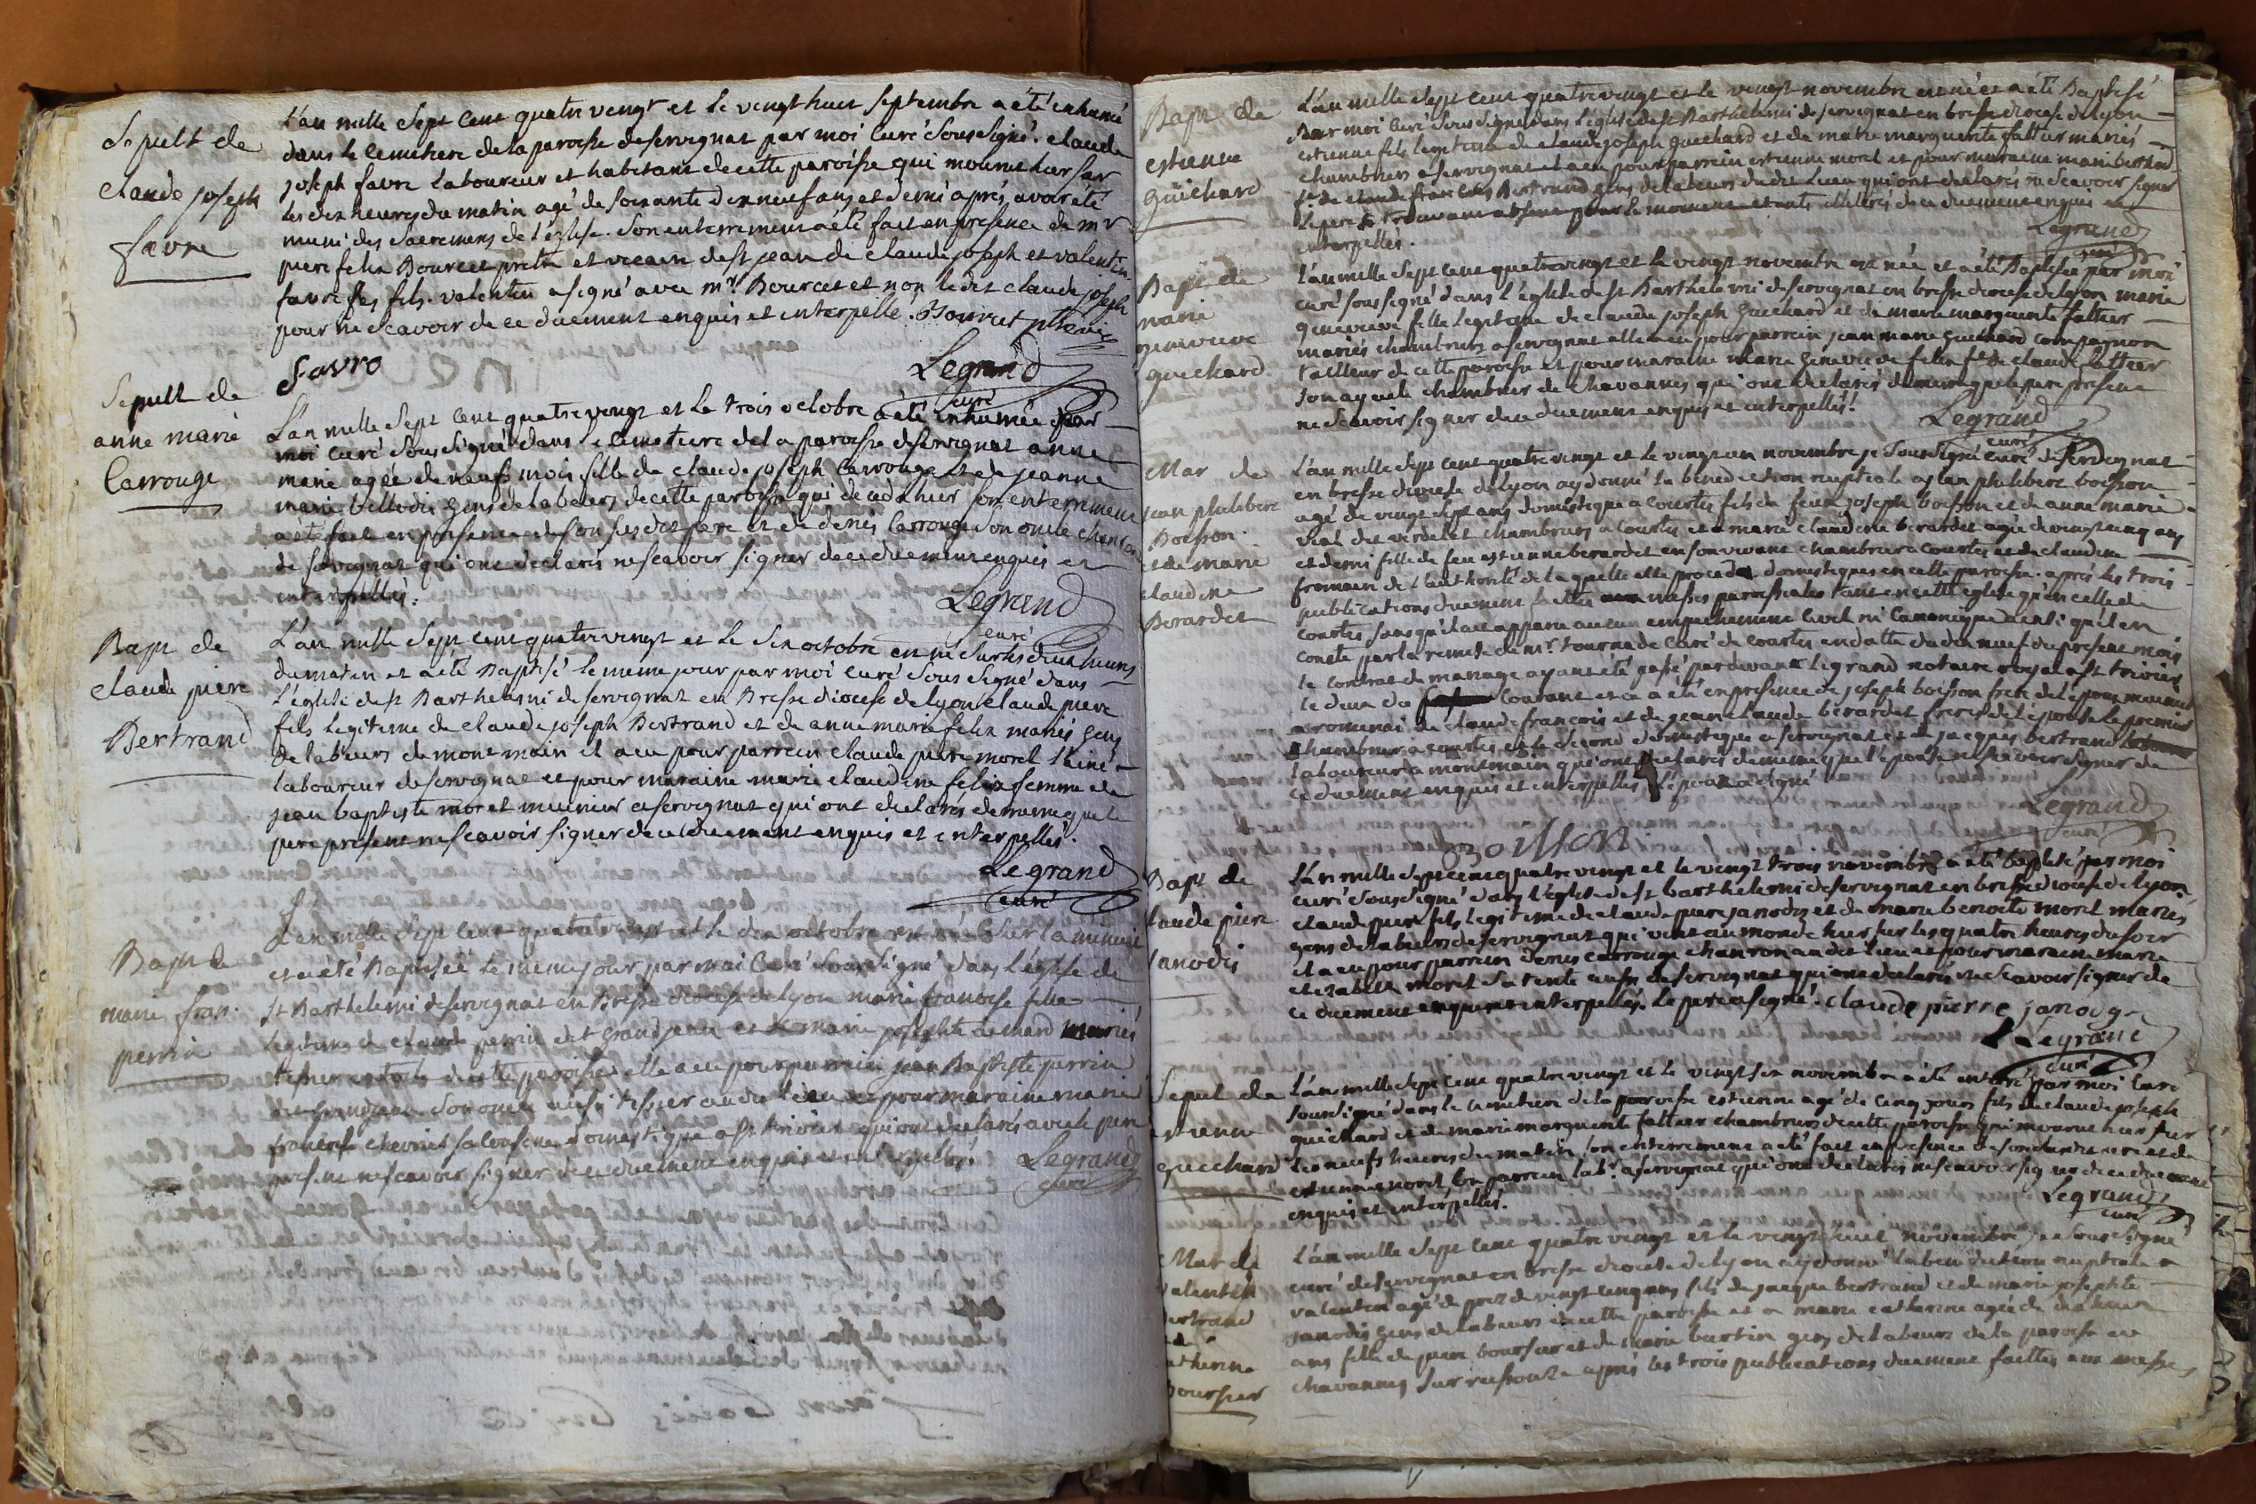 Sepult de
claude joseph
favre
L'an mille Sept Cent quatre vingt et le vingt huit Septembre a été inhumé
dans le Cemetiere de la paroisse de servignat par moi Curé Sous Signé claude
joseph favre laboureur et habitant de cette paroisse qui mourut hier sur
les dix heures du matin agé de soixante dix neuf ans et demi aprés avoir été
muni des Sacremens de l'église. Son enterrement a été fait en presence de mr
piere felix Bourcet pretre et vicaire de st jean de claude joseph et valentin
favre ses fils. valentin a signé avec mr. Bourcet et non ledit claude joseph
pour ne scavoir de ce duement enquis et interpellé. Bourcet
favre
Legrand
curé
Sepult de
anne marie
Carrouge
L'an mille Sept Cent quatre vingt et le trois octobre a été inhumée par
moi Curé Sous Signé dans le Cemetiere de la paroisse de servignat anne
marie agée de neufs mois fille de claude joseph Carrouge et de jeanne
marie gens de labeurs de cette paroisse qui deceda hier son enterrement
a été fait en presence de son susdit pere et de denis Carrouge son oncle
de servignat qui ont declarés ne scavoir signer de ce duement enquis et
interpellés.
Legrand
curé
Bapt de
claude piere
Bertrand
L'an mille Sept Cent quatre vingt et le Six octobre est né sur les deux heures
du matin et a été Baptisé le meme jour par moi Curé Sous Signé dans
l'église de st Barthelemi de servignat en Bresse diocese de lyon claude piere
fils legitime de claude joseph Bertrand et de anne marie felix mariés gens
de labeurs de mont main il a eu pour parrein claude piere morel l'ainé
laboureur de servignat et pour maraine marie claudine felix femme de
jean baptiste moret meunier a servignat qui ont declarés de meme que le
pere present ne scavoir signer de ce duement enquis et interpellés.
Legrand
curé
Bapt de
marie fran.
perrin
L'an mille Sept Cent quatre vingt et le dix octobre est née sur la minuit
et a été Baptisée le meme jour par moi Curé Sous Signé dans l'église de
st Barthelemi de servignat en Bresse diocese de lyon marie francoise fille
legitime de claude perrin dit grand jean et de marie josephte mariés
de cette paroisse elle a eu pour parrein jean Baptiste perrin
dit grand jean son oncle aussi tissier audit lieu et pour maraine marie
chevrier sa cousine domestique a st trivier qui ont declarés avec le pere
present ne scavoir signer de ce duement enquis et interpellés.
Legrand
curé
Bapt de
estienne
Guichard
L'an mille Sept Cent quatre vingt et le vingt novembre est né et a été Baptisé
Par moi Curé Sous Signé dans l'église de st Barthelemi de servignat en bresse diocese de lyon
estienne fils legitime de claude joseph guichard et de marie marguerite fattier mariés
chambriers a servignat il a eu pour parrein estienne morel et pour maraine marie
fe de claude Bertrand gens de labeurs dudit lieu qui ont declarés ne scavoir signer
le pere se trouvant absent pour le moment de ce duement enquis et
interpellés.
Legrand
curé
Bapt de
marie
genevieve
guichard
L'an mille Sept Cent quatre vingt et le vingt novembre est née et a été Baptisée par moi
Curé sous signé dans l'église de st Barthelemi de servignat en bresse diocese de lyon marie
genevieve fille legitime de claude joseph Guichard et de marie marguerite fattier
mariés chambriers a servignat elle a eu pour parrein jean marie guichard compagnon
tailleur de cette paroisse et pour maraine marie genevieve felix fe de claude fattier
son ayeule chambrier de chavannes qui ont declarés de meme que le pere present
ne scavoir signer de ce duement enquis et interpellés.
Legrand
curé
Mar de
jean philibert
Boisson
et de marie
claudine
Berardet
L'an mille Sept Cent quatre vingt et le vingt un novembre je Sous Signé Curé de Servignat
en bresse diocese de lyon ay donné la benediction nuptiale a jean philibert boisson
agé de vingt sept ans domestique a courtes fils de feu joseph boisson et de anne marie
vial dit verdelet chambriers a Courtes et a marie claudine berardet agée de vingt cinq ans
et demi fille de feu estienne berardet en son vivant chambrier a courtes et de claudine
fromain de l'authorité de laquelle elle procede domestiques en cette paroisse. aprés les trois
publications duement faittes aux messes paroissiales tant en cette église qu'en celle de
Courtes sans qu'il ait apparu aucun empechement Civil ni Canonique ainsi qu'il en
Conste par la remise de mr. tournade Curé de Courtes en datte du dix neuf du present mois
le contrat de mariage ayant été passé par devant Legrand notaire royal a st trivier
le deux du courant et ce a été en presence de joseph boisson frere de l'epoux meunier
a romenai de claude francois et de jean claude berardet freres de l'epouse le premier
chambrier a courtes et le second domestique a servignat et de jacques bertrand
laboureur a mont main qui ont declarés de meme que l'epouse ne scavoir signer de
ce duement enquis et interpellés l'epoux a signé
Legrand
curé
Boisson
Bapt de
claude piere
janodis
L'an mille Sept Cent quatre vingt et le vingt trois novembre a été baptisé par moi
curé sous signé dans l'église de st barthelemi de servignat en bresse diocese de lyon
claude piere fils legitime de claude piere janodis et de marie benoite morel mariés
gens de labeurs de servignat qui vint au monde hier sur les quatre heures du soir
il a eu pour parrein denis carrouge audit lieu et pour maraine marie
elisabeth morel sa tente aussi de servignat qui ont declarés ne scavoir signer de
ce duement enquis et interpellés. le pere a signé. claude pierre janody
Legrand
curé
Sepult de
estienne
guichard
L'an mille Sept Cent quatre vingt et le vingt six novembre a été enterré par moi Curé
sous signé dans le cemetiere de la paroisse estienne agé de cinq jours fils de claude joseph
guichard et de marie marguerite fattier chambriers de cette paroisse qui mourut hier sur
les neufs heures du matin. son enterrement a été fait en presence de son dit pere et de
estienne morel son parrein labr. a servignat qui ont declarés ne scavoir signer de ce duement
enquis et interpellés.
Legrand
curé
Mar de
valentin
bertrand
et de
catherine
boursier
L'an mille Sept Cent quatre vingt et le vingt huit novembre je Sous Signé
curé de servignat en bresse diocese de lyon ay donné la benediction nuptiale a
valentin agé de prez de vingt cinq ans fils de jacque bertrand et de marie josephte
janodis gens de labeurs de cette paroisse et a marie catherine agée de dix huit
ans fille de piere boursier et de marie burtin gens de labeurs de la paroisse de
chavannes sur reissouze aprés les trois publications duement faittes aux messes